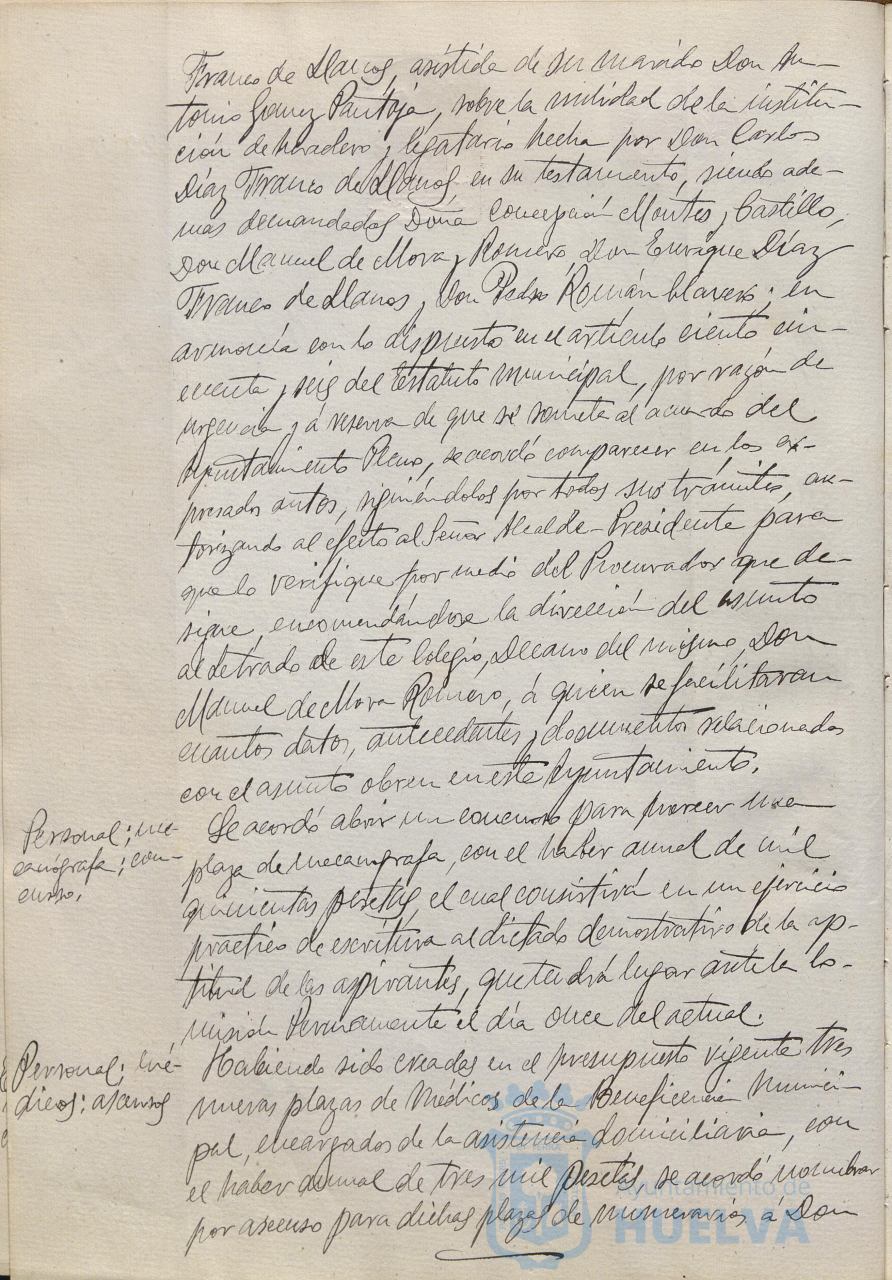 Franco de Llanos, asistida de su marido Don An-
tonio Gomez Pantoja, sobre la nulidad de la institu-
ción de heredero y legatario hecha por Don Carlos
Díaz Franco de Llanos en su testamento, siendo ade-
mas demandados Doña Concepción Montes y Castillo,
Don Manuel de Mora y Romero, Don Enrique Díaz
Franco de Llanos y Don Pedro Román Clavero; en
armonía con lo dispuesto en el artículo ciento cin-
cuenta y seis del Estatuto municipal, por razón de
urgencia y á reserva de que se someta al acuerdo del
Ayuntamiento Pleno, se acordó comparecer en los ex-
presados autos, siguiéndolos por todos sus trámites, au-
torizando al efecto al Señor Alcalde-Presidente para
que lo verifique por medio del Procurador que de-
signe, encomendándose la dirección del asunto
al Letrado de este Colegio, Decano del mismo, Don
Manuel de Mora Romero, á quien se facilitaran
cuantos datos, antecedentes y documentos relacionados
con el asunto obren en este Ayuntamiento.
Personal; me-
canógrafa; con-
curso.
Se acordó abrir un concurso para proveer una
plaza de mecanografa, con el haber anual de mil
quinientas pesetas, el cual consistirá en un ejercicio
practico de escritura al dictado demostrativo de la ap-
titud de las aspirantes, que tendrá lugar ante la Co-
misión Permanente el día once del actual.
Personal; mé-
dicos; ascensos
Habiendo sido creadas en el presupuesto vigente tres
nuevas plazas de Médicos de la Beneficencia Munici-
pal, encargados de la asistencia domiciliaria, con
el haber anual de tres mil pesetas, se acordó nombrar
por ascenso para dichas plazas de numerarios á Don
Ayuntamiento de
HUELVA